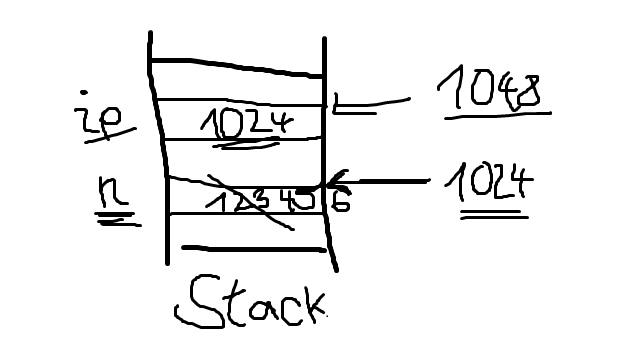 ip 1024 1048
n 123456 1024
Stack